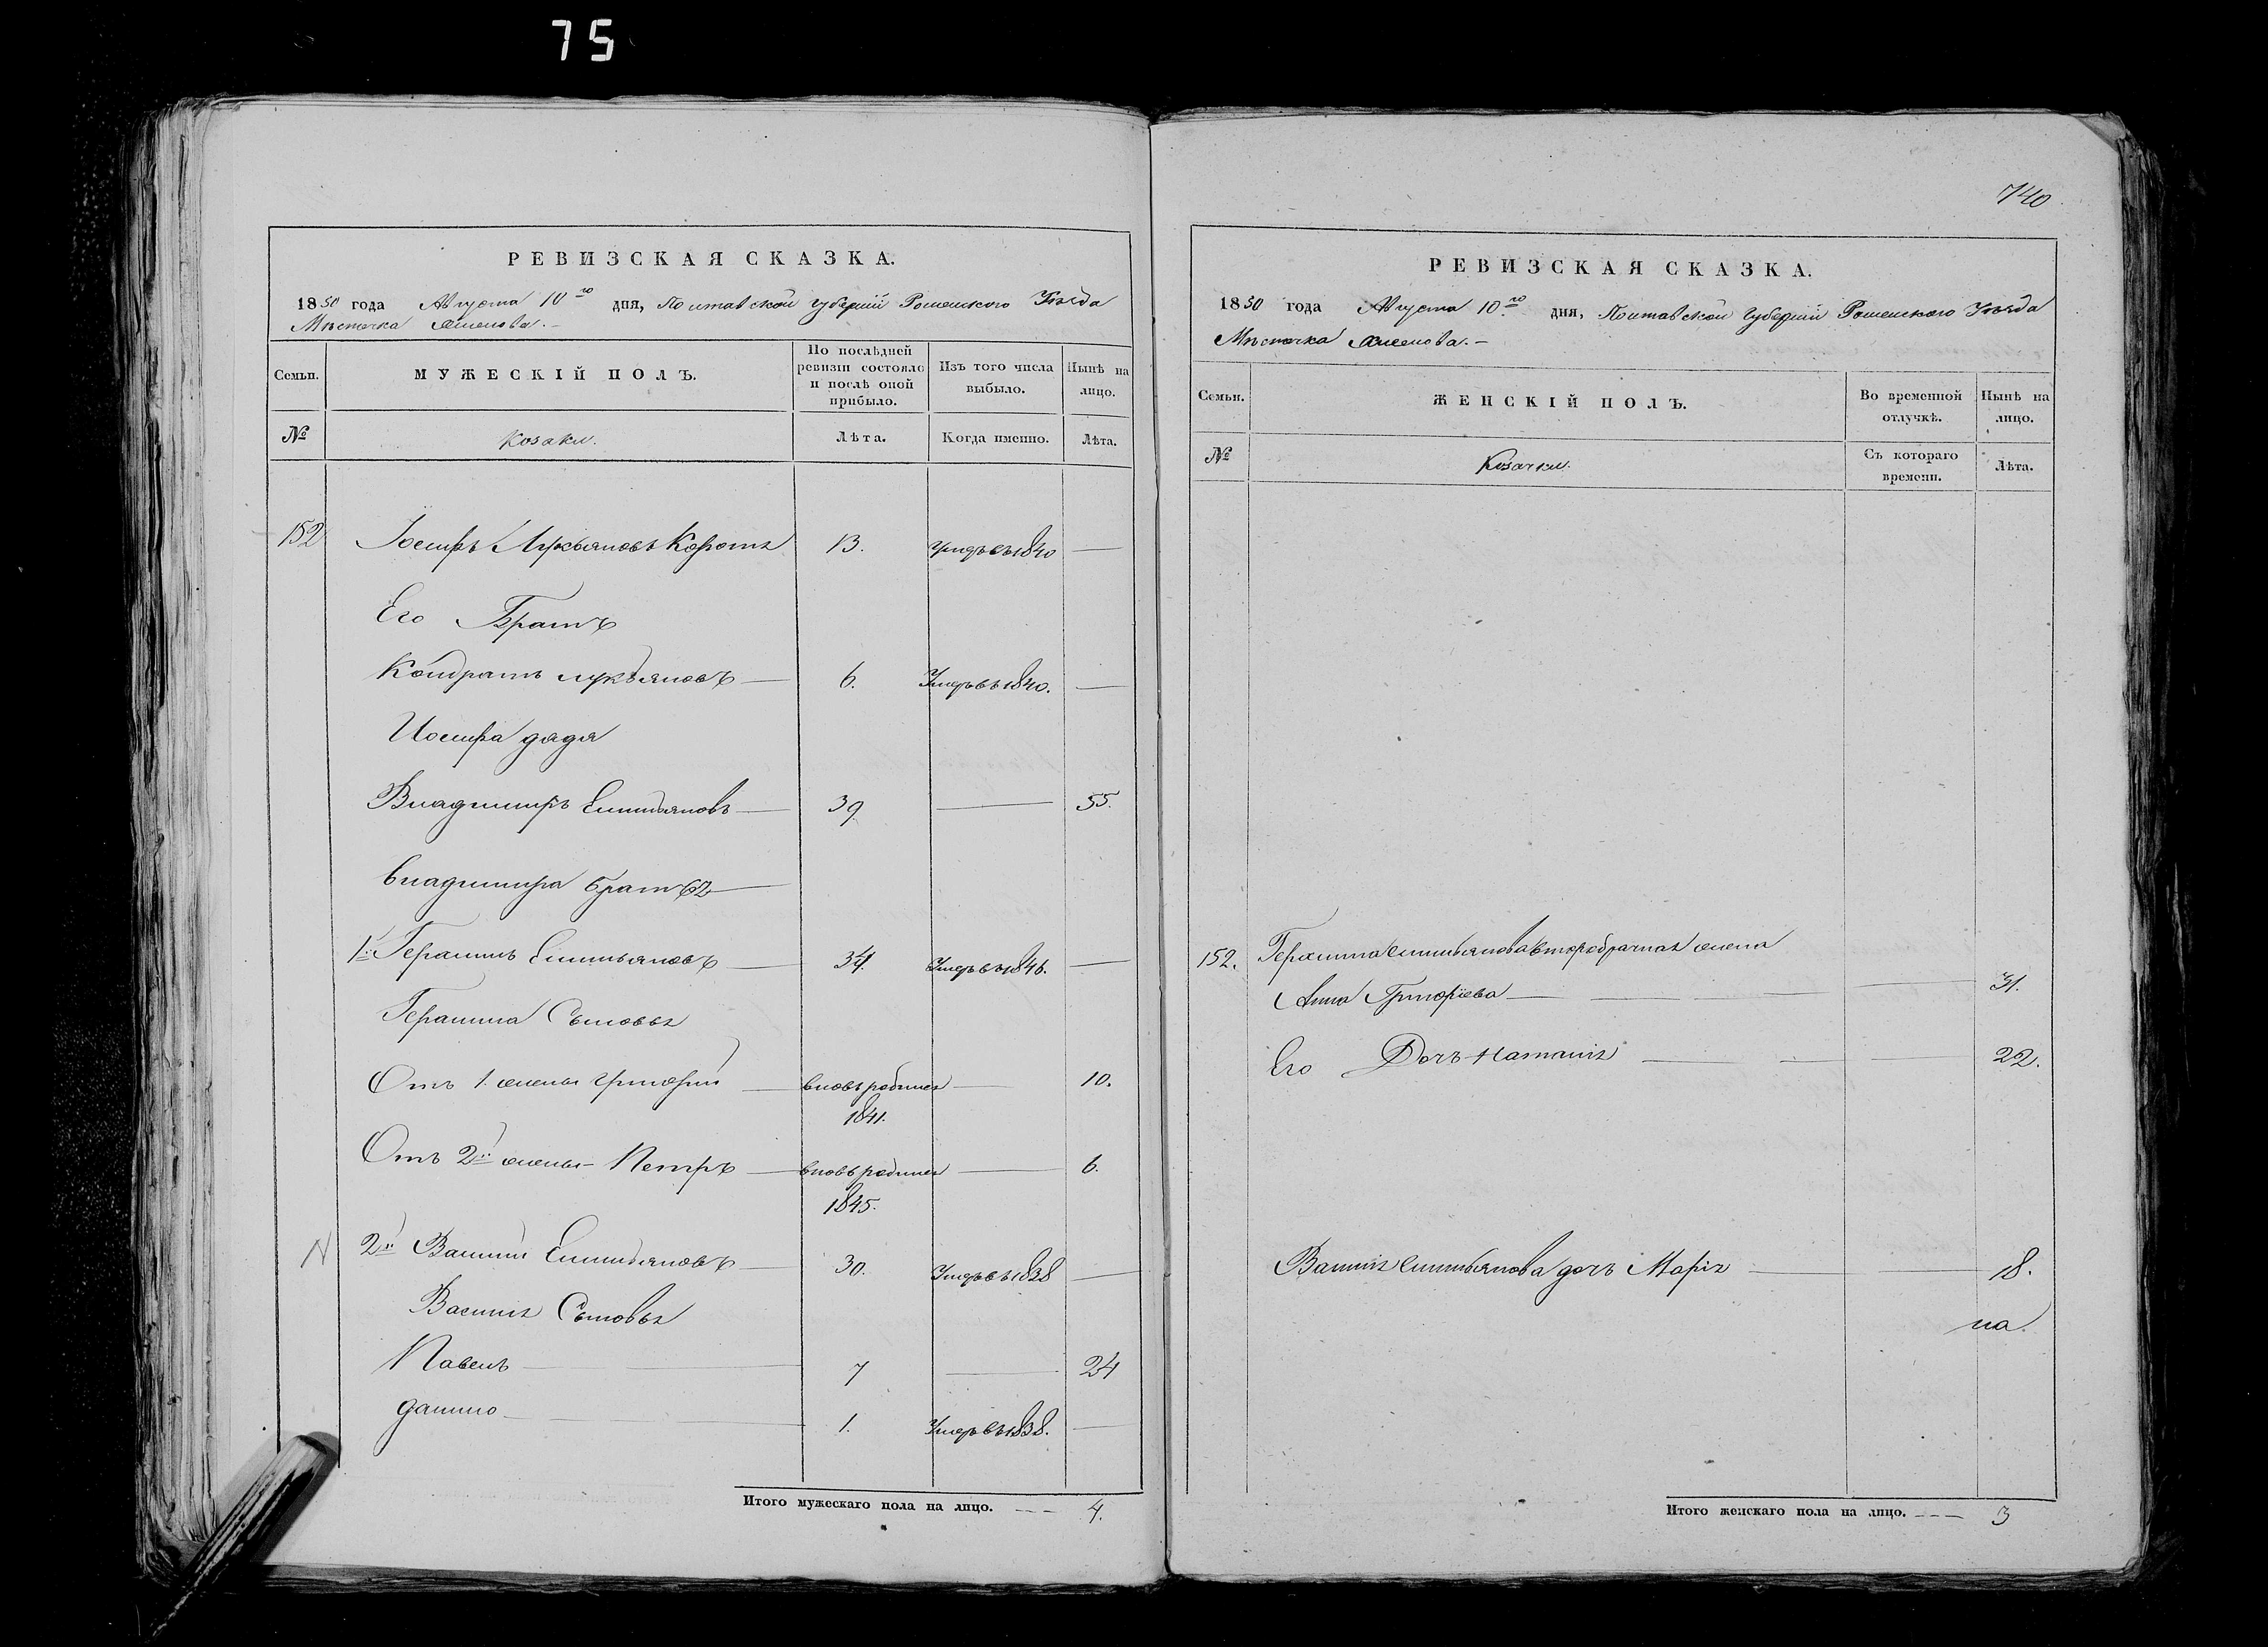 75
РЕВИЗСКАЯ СКАЗКА.
1850 года Августа 10го дня, Полтавской губерніи Роменского Уѣзда
Мѣстечка
Семьи.
МУЖЕСКІЙ ПОЛЪ.
По послѣдней ревизіи состояло и послѣ оной прибыло.
Изъ того числа выбыло.
Нынѣ на лицо.
№
Козаки.
Лѣта.
Когда именно.
Лѣта.
152 Іосифъ Лукьяновъ Коротъ 13. умеръ въ 1840 —
Его Братъ
Кондратъ лукьяновъ — 6. Умеръ въ 1840. —
Иосифа дядя
Владимиръ Емильяновъ — 39 — 55.
владимира братья —
1й Герасимъ Емильяновъ — 34. Умеръ въ 1846. —
Герасима Сыновья
Отъ 1. жены григорий — вновь родился — 10.
1841.
Отъ 2й жены – Петръ — вновь родился — 6.
1845.
N 2й Василий Емильяновъ — 30. Умеръ въ 1838 —
Василия Сыновья
Павелъ — 7 — 24
данило — 1. Умеръ въ 1838. —
Итого мужескаго пола на лицо. --- 4.
740
РЕВИЗСКАЯ СКАЗКА.
1850 года Августа 10.го дня, Полтавской Губерніи Роменского Уѣзда
Мѣстечка
Семьи.
ЖЕНСКІЙ ПОЛЪ.
Во временной отлучкѣ.
Нынѣ на лицо.
№
Козачки.
Съ котораго времени.
Лѣта.
152. Герасима емильянова второбрачная жена
Анна Григоріева — 31.
Его Дочь Наталия — 22.
Василия емильянова дочь Марія — 18.
на.
Итого женскаго пола на лицо. --- 3